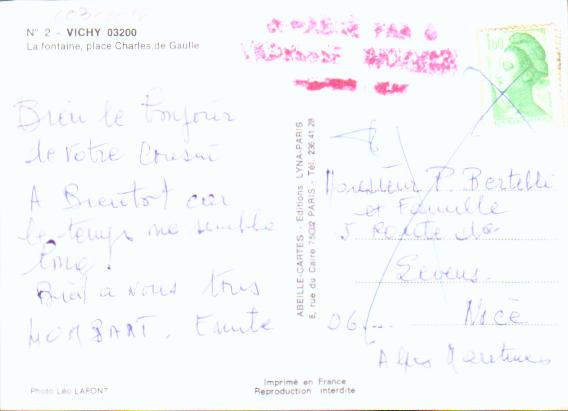 N° 2 - VICHY 03200
La fontaine, place Charles de Gaulle
1,60
Bien le bonjour
de votre Cousin
A Bientot car
le temps me semble
long.
Bien a vous tous
Emile
ABEILLE-CARTES - Editions LYNA-PARIS
8, rue du Caire 75002 PARIS - Tél. 236 41 28
Monsieur P. Bertelli
et Famille
5 Route de
Levens.
06... Nice
Alpes Maritimes
Photo Léo LAFONT
Imprimé en France
Reproduction interdite